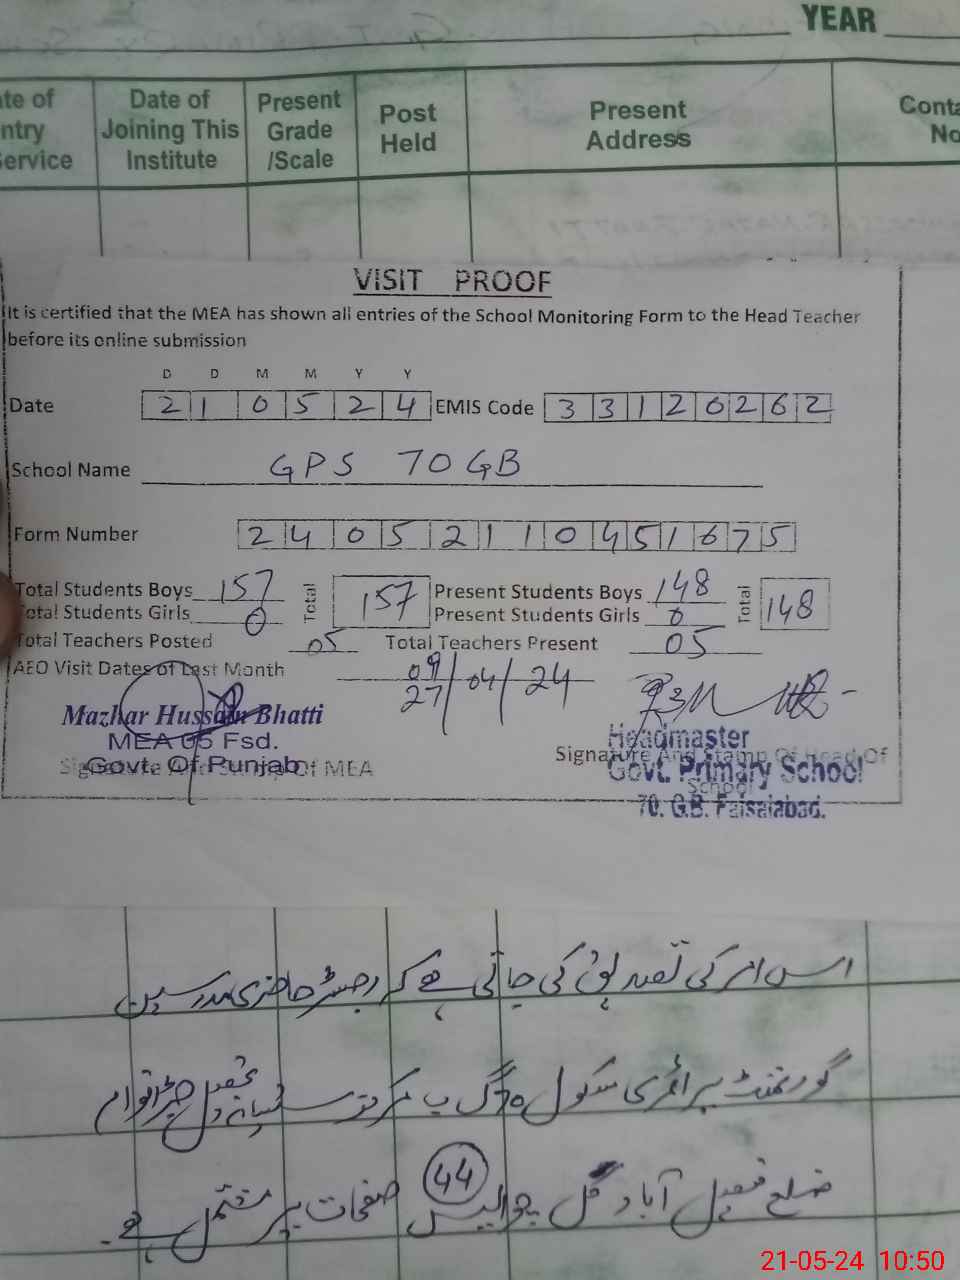 YEAR
ate of
ntry
Service
Date of
Joining This
Institute
Present
Grade
/Scale
Post
Held
Present
Address
Conta
No
VISIT PROOF
It is certified that the MEA has shown all entries of the School Monitoring Form to the Head Teacher
before its online submission
D D M M Y Y
Date 2 1 0 5 2 4 EMIS Code 3 3 1 2 0 2 6 2
School Name GPS 70 GB
Form Number 2 4 0 5 2 1 1 0 4 5 1 6 7 5
Total Students Boys 157 Total 157 Present Students Boys 148 Total 148
Total Students Girls 0 Present Students Girls 0
Total Teachers Posted 05 Total Teachers Present 05
AEO Visit Dates of Last Month 09 27/04/24
Mazhar Hussain Bhatti
MEA 05 Fsd.
Govt. Of Punjab
Signature And Stamp Of MEA
Headmaster
Signature And Stamp Of Head Of
Govt. Primary School
School
70. G.B. Faisalabad.
اس امر کی تصدیق کی جاتی ہے کہ رجسٹر حاضری مدرسین
گورنمنٹ پرائمری سکول 70 گ ب مرکز تحصیل جڑانوالہ
ضلع فیصل آباد کل چوالیس 44 صفحات پر مشتمل ہے۔
21-05-24 10:50